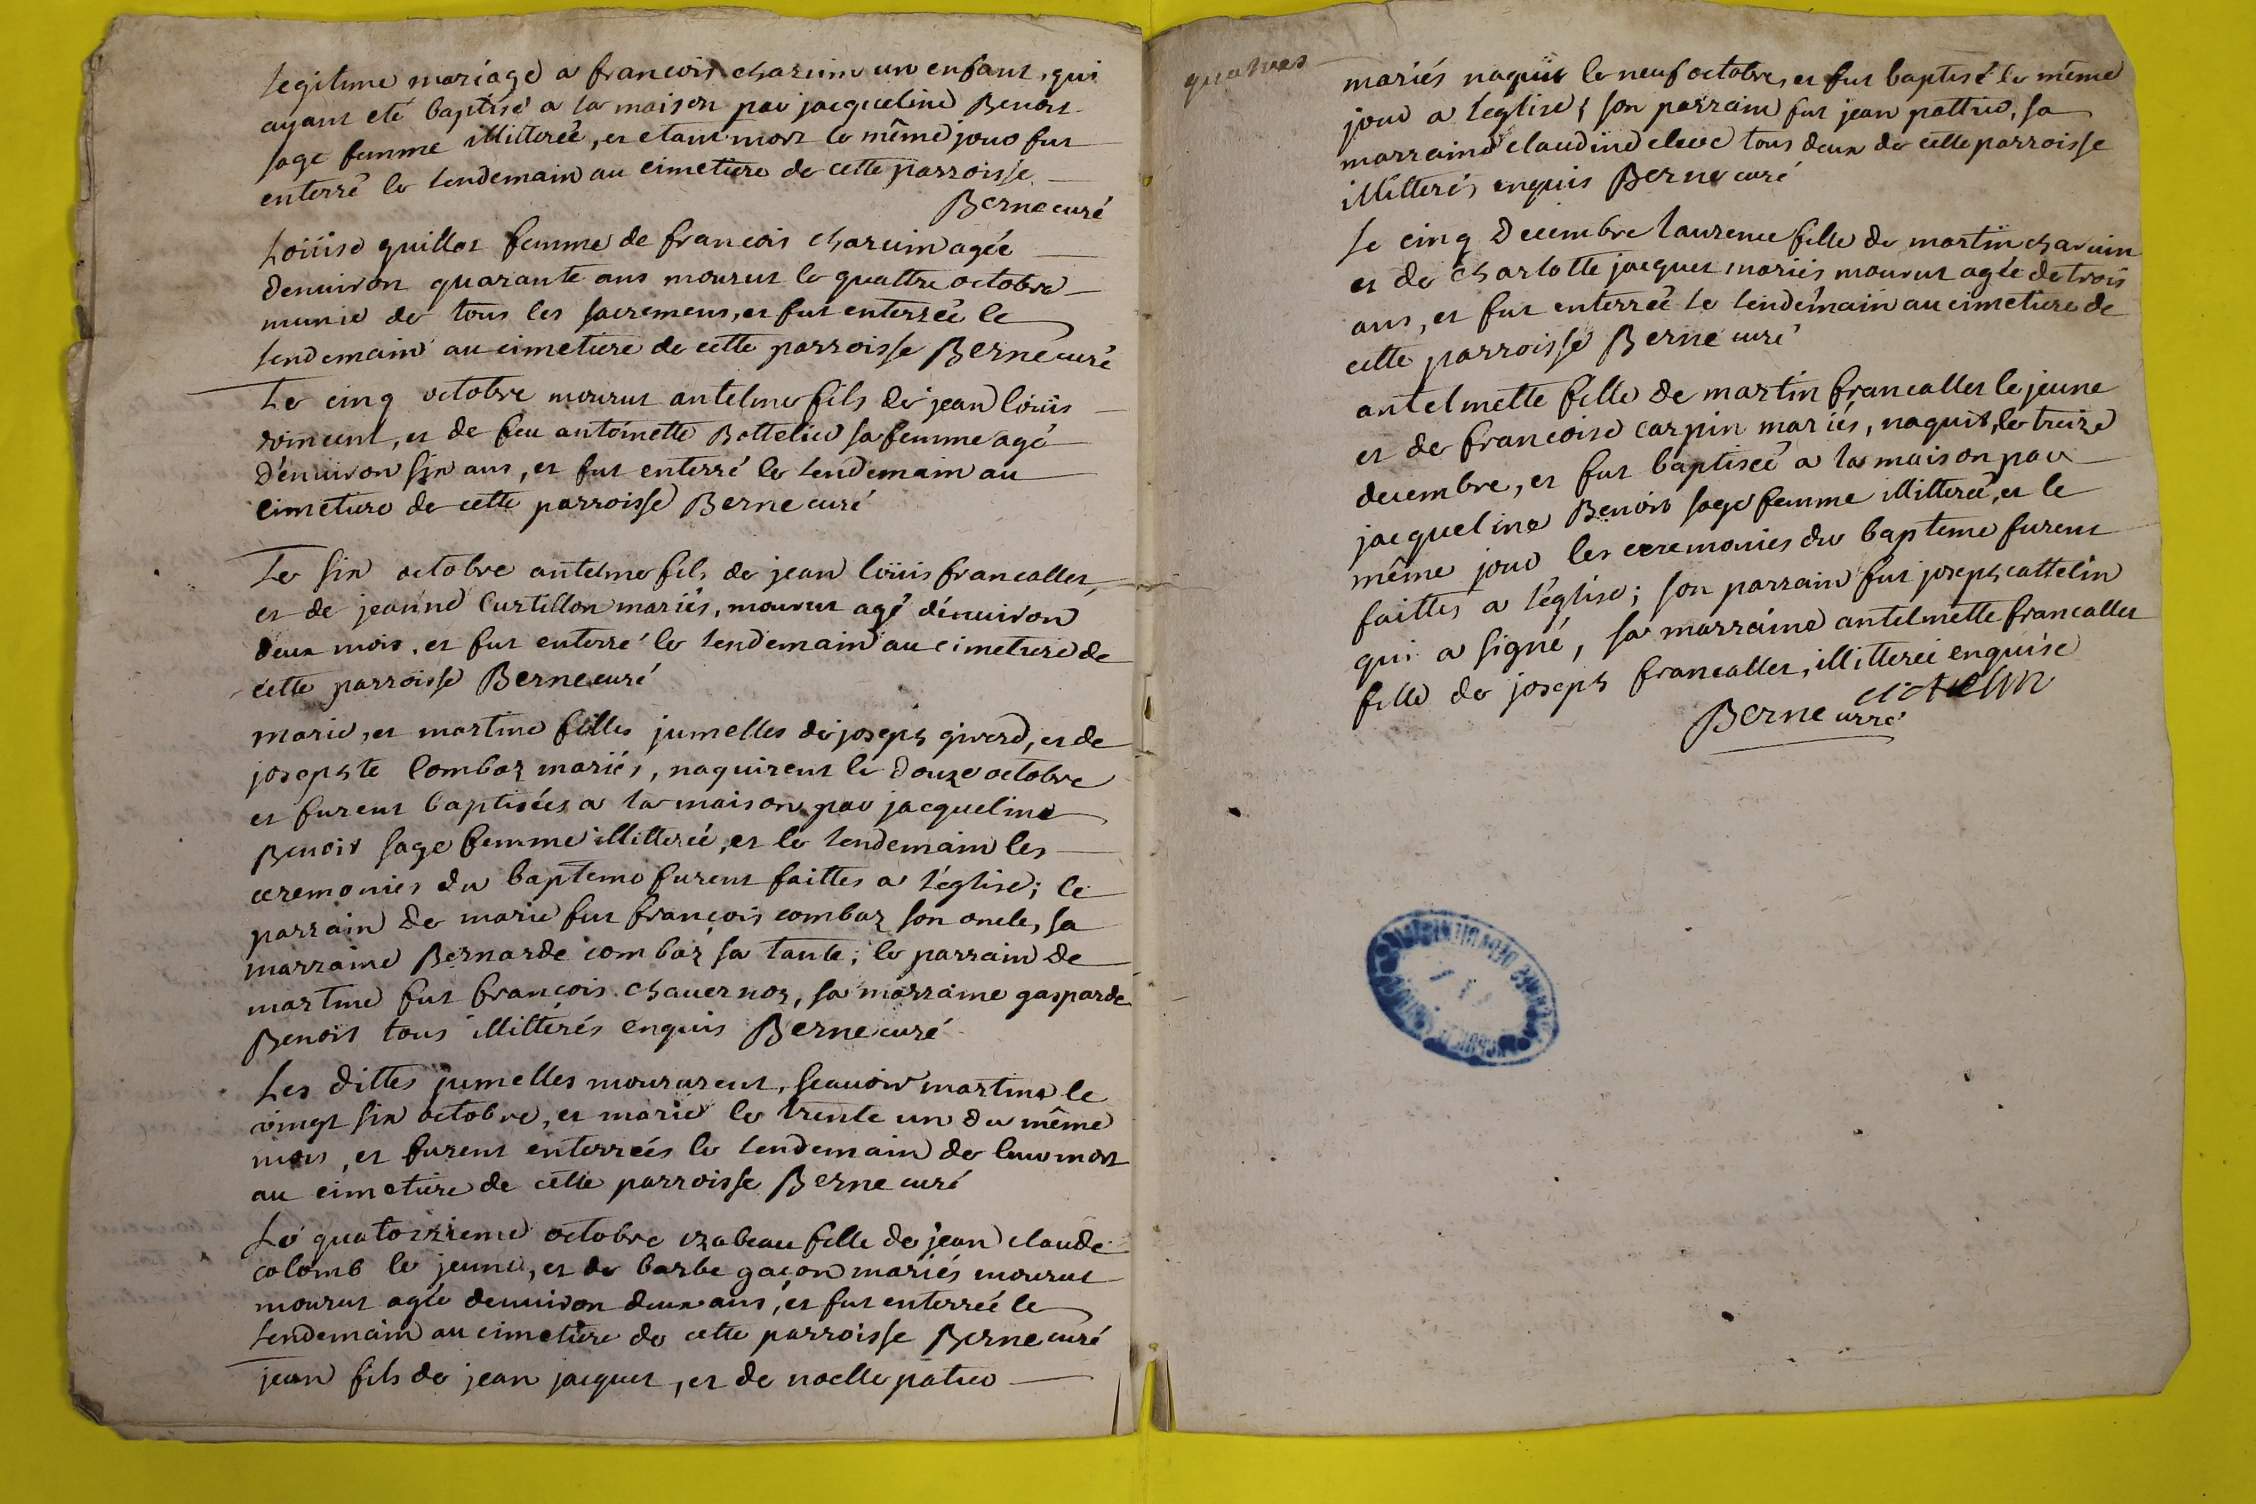 legitime mariage a francois charuin un enfant, qui
ayant eté baptisé a la maison par jacqueline Benoit
sage femme illitterée, et etant mort le même jour fut
enterré le lendemain au cimetiere de cette parroisse
Berne curé
Loüise guillot femme de francois charuin agée
denuiron quarante ans mourut le quattre octobre
munie de tous les sacremens, et fut enterrée le
lendemain au cimetiere de cette parroisse Berne curé
Le cinq octobre mourut antelme fils de jean loüis
vincent, et de feu antoinette Bottelier sa femme agé
d'enuiron six ans, et fut enterré le lendemain au
cimetiere de cette parroisse Berne curé
Le six octobre antelme fils de jean loüis francallet,
et de jeanne Curtillon mariés, mourut agé d'enuiron
deux mois, et fut enterré le lendemain au cimetiere de
cette parroisse Berne curé
marie, et martine filles jumelles de joseph girerd, et de
josephte Combaz mariés, naquirent le douze octobre
et furent baptisées a la maison par jacqueline
Benoit sage femme illitterée, et le lendemain les
ceremonies du bapteme furent faittes a l'église; le
parrain de marie fut françois combaz son oncle, sa
marraine Bernarde combaz sa tante; le parrain de
martine fut françois chauernoz, sa marraine gasparde
Benoit tous illitterés enquis Berne curé
Les dittes jumelles moururent, scauoir martine le
vingt six octobre, et marie le trente un du même
mois, et furent enterrées le lendemain de leur mort
au cimetiere de cette parroisse Berne curé
Le quatorzieme octobre izabeau fille de jean claude
colomb le jeune, et de barbe gaçon mariés mourut
mourut agée denuiron deux ans, et fut enterrée le
lendemain au cimetiere de cette parroisse Berne curé
jean fils de jean jacquet, et de noelle patrer
mariés naquit le neuf octobre, et fut baptisé le même
jour a l'eglise; son parrain fut jean pattrer, sa
marraine claudine tous deux de cette parroisse
illitterés enquis Berne curé
Le cinq Decembre laurence fille de martin charuin
et de Charlotte jacquet mariés mourut agée de trois
ans, et fut enterrée le lendemain au cimetiere de
cette parroisse Berne curé
antelmette fille de martin francallet le jeune
et de francoise carpin mariés, naquit, le treize
decembre, et fut baptisée a la maison par
jacqueline Benoit sage femme illitterée, et le
même jour les ceremonies du bapteme furent
faittes a l'église; son parrain fut joseph cattelin
qui a signé, sa marraine antelmette francallet
fille de joseph francallet, illitterée enquise
cattelin
Berne curé